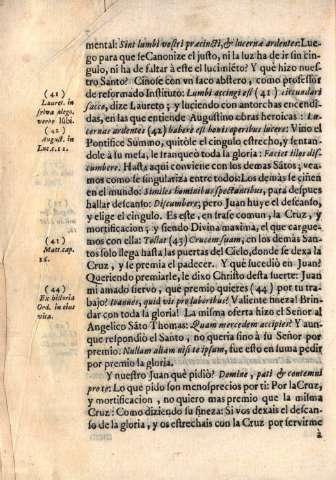 mental: Sint lumbi vestri præcincti, & lucernæ ardentes: Lue-
go para que se Canonize el justo, ni la luz ha de ir sin cin-
gulo, ni ha de faltar à este el lucimiẽto? Y què hizo nues-
tro Santo? Ciñose con vn saco abstero, como professor
de reformado Instituto: Lumbi accingi est (41) circundare
sacco, dize Laureto; y luciendo con antorchas encendi-
das, en las que entiende Augustino obras heroicas: Lu-
cernas ardentes (42) habere est bonis operibus lucere: Vino el
Pontifice Summo, quitòle el cingulo estrecho, y sentan-
dole à su mesa, le franqueò toda la gloria: Faciet illos dis-
cumbere. Hasta aqui conviene con los demas Sãtos; vea-
mos como se singulariza entre todos: Los demàs se ciñen
en el mundo: Similes hominibus expectantibus, para despues
hallar descanso: Discumbere; pero Juan huye el descanso,
y elige el cingulo. Es este, en frase comun, la Cruz, y
mortificacion; y siendo Divina maxima, el que cargue-
mos con ella: Tollat (43) Crucem suam, en los demàs San-
tos solo llega hasta las puertas del Cielo, donde se dexa la
Cruz, y se premia el padecer. Y què sucediò en Juan?
Queriendo premiarle, le dixo Christo desta suerte: Juan
mi amado siervo, què premio quieres (44) por tu tra-
bajo? Ioannes, quid vis pro laboribus? Valiente fineza! Brin-
dar con toda la gloria! La misma oferta hizo el Señor al
Angelico Sãto Thomas: Quam mercedem accipies? Y aun-
que respondiò el Santo, no queria sino à su Señor por
premio. Nullam aliam nisi te ipsum, fue esto en suma pedir
por premio la gloria.
Y nuestro Juan què pidiò? Domine, pati & contemni
pro te: Lo que pido son menosprecios por ti: Por la Cruz,
y mortificacion, no quiero mas premio que la misma
Cruz: Como diziendo su fineza: Si vos dexais el descan-
so de la gloria, y os estrechais con la Cruz por servirme
à
(41)
Lauret. in
verbo
(42)
August. in
(43)
Matt. cap.
16.
(44)
Ex historia
Ord. in eius
vita.